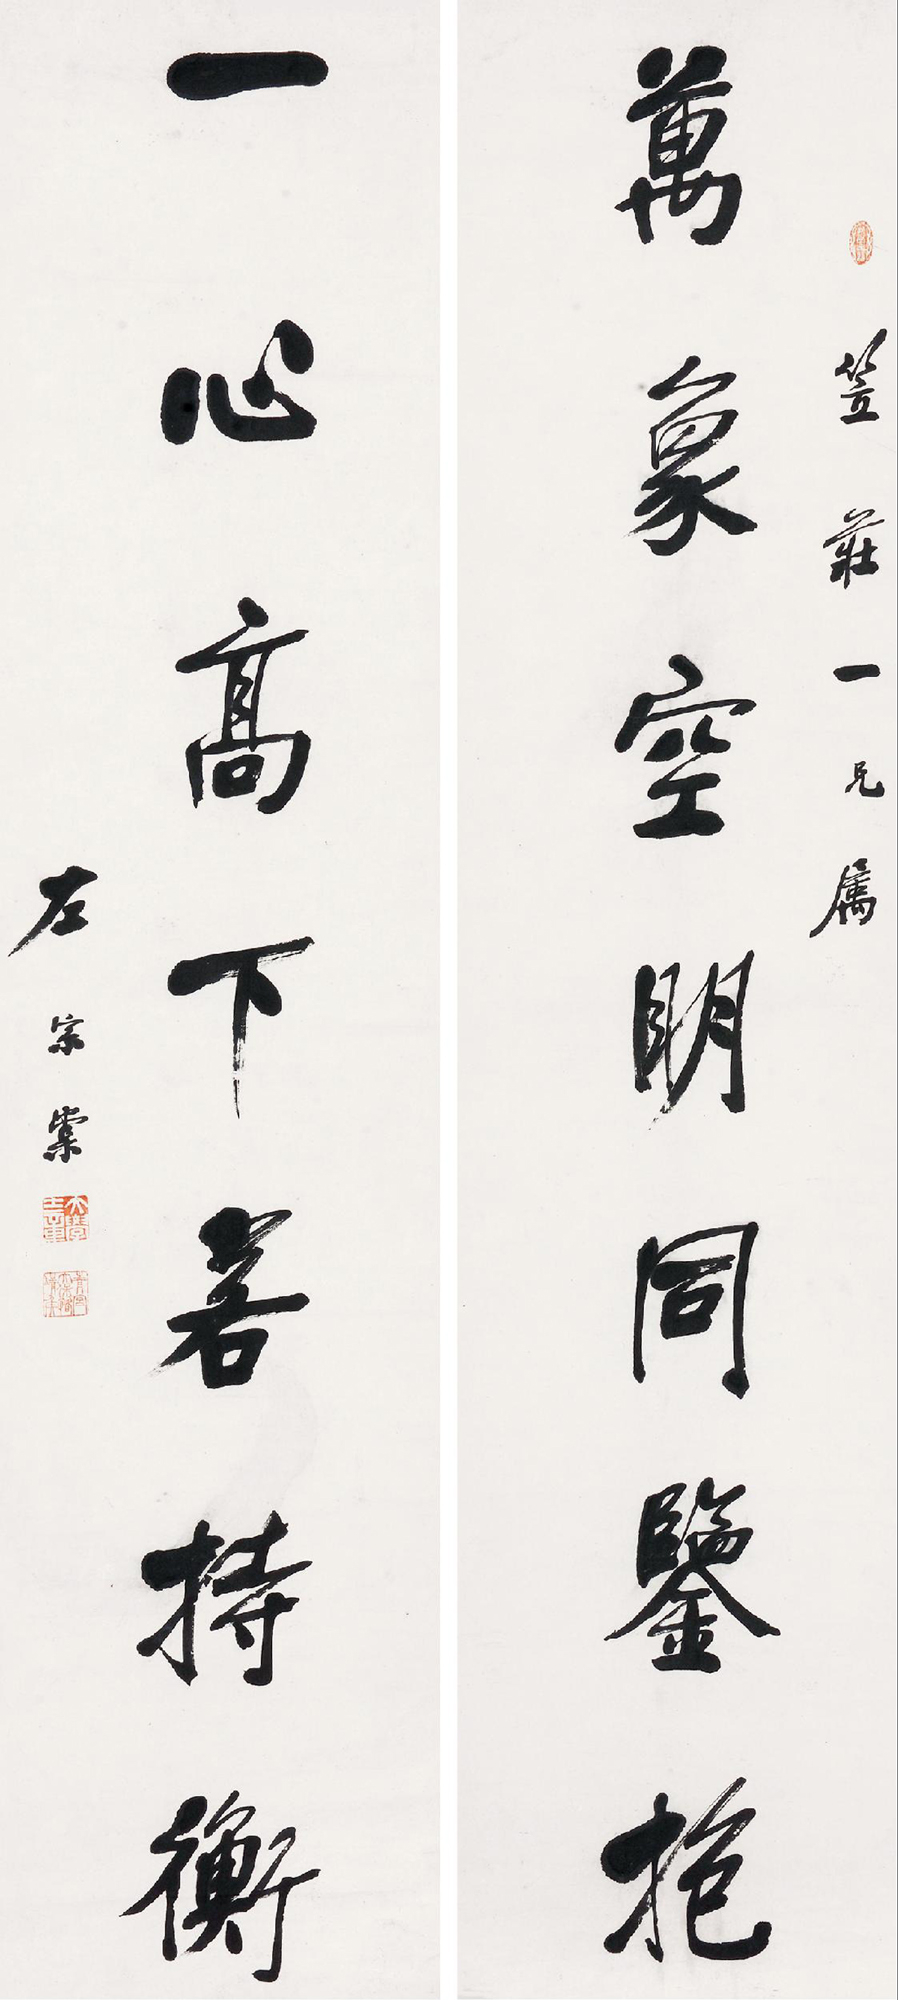 笠莊一兄属
萬象空明同鑒抱
一心高下若持衡
左宗棠